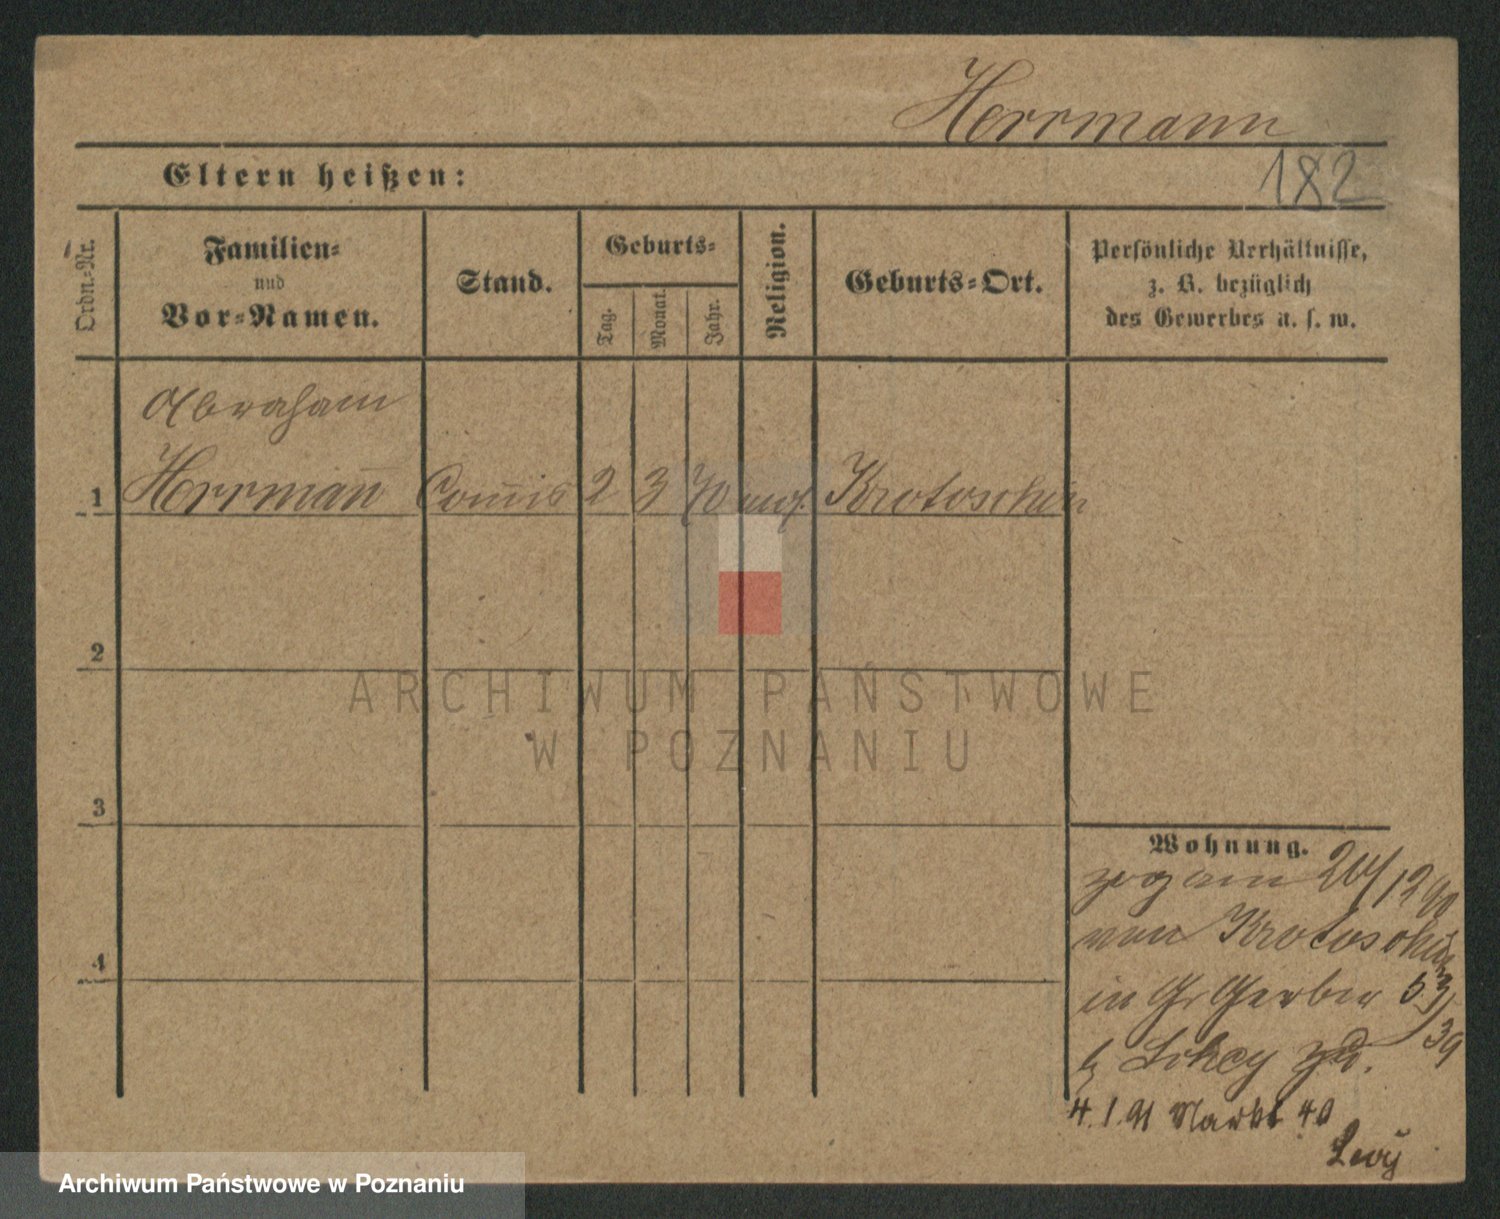 Herrmann
182
Eltern heißen:
Ordn.-Nr.
Familien-
und
Vor-Namen.
Stand.
Geburts-
Tag.
Monat.
Jahr.
Religion.
Geburts-Ort.
Persönliche Verhältnisse,
z. B. bezüglich
des Gewerbes u. s. w.
Abraham
1 Herrmañ Com̅is 2 3 70 mos. Krotoschin
2
3
4
Wohnung.
zog am 20/12 90
von Krotoschin
in Gr Gerber 53/39
b zu.
4.1.91 Markt 40
Levÿ
ARCHIWUM PAŃSTWOWE
W POZNANIU
Archiwum Państwowe w Poznaniu